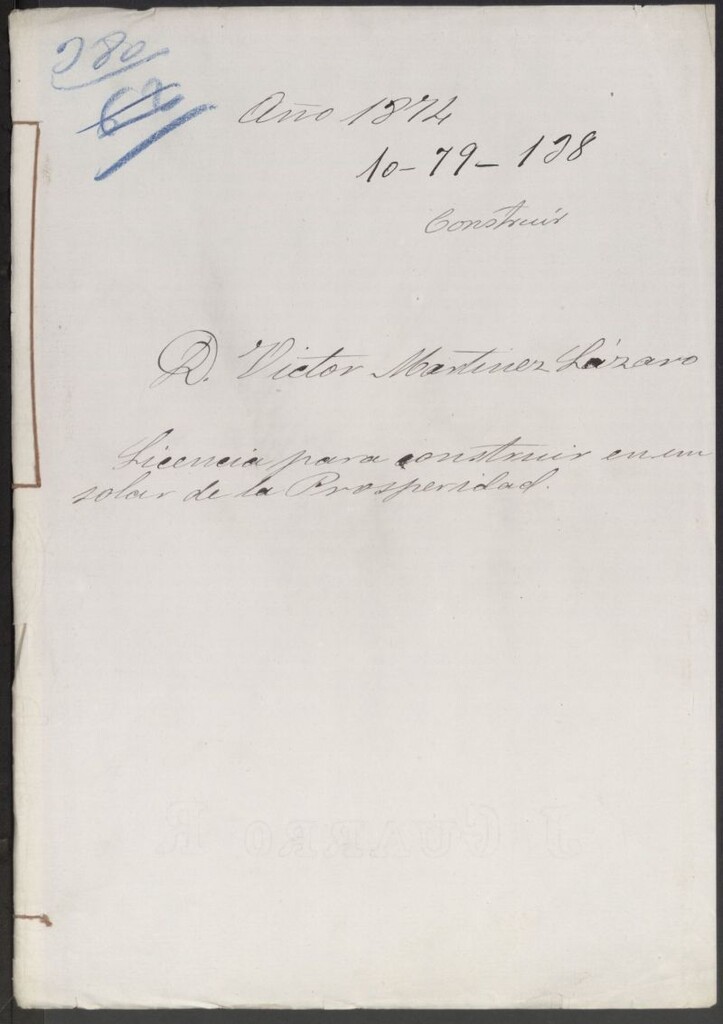 280
Año 1874
10-79-128
Construir
D. Victor Martinez Lázaro
Licencia para construir en un
solar de la Prosperidad.